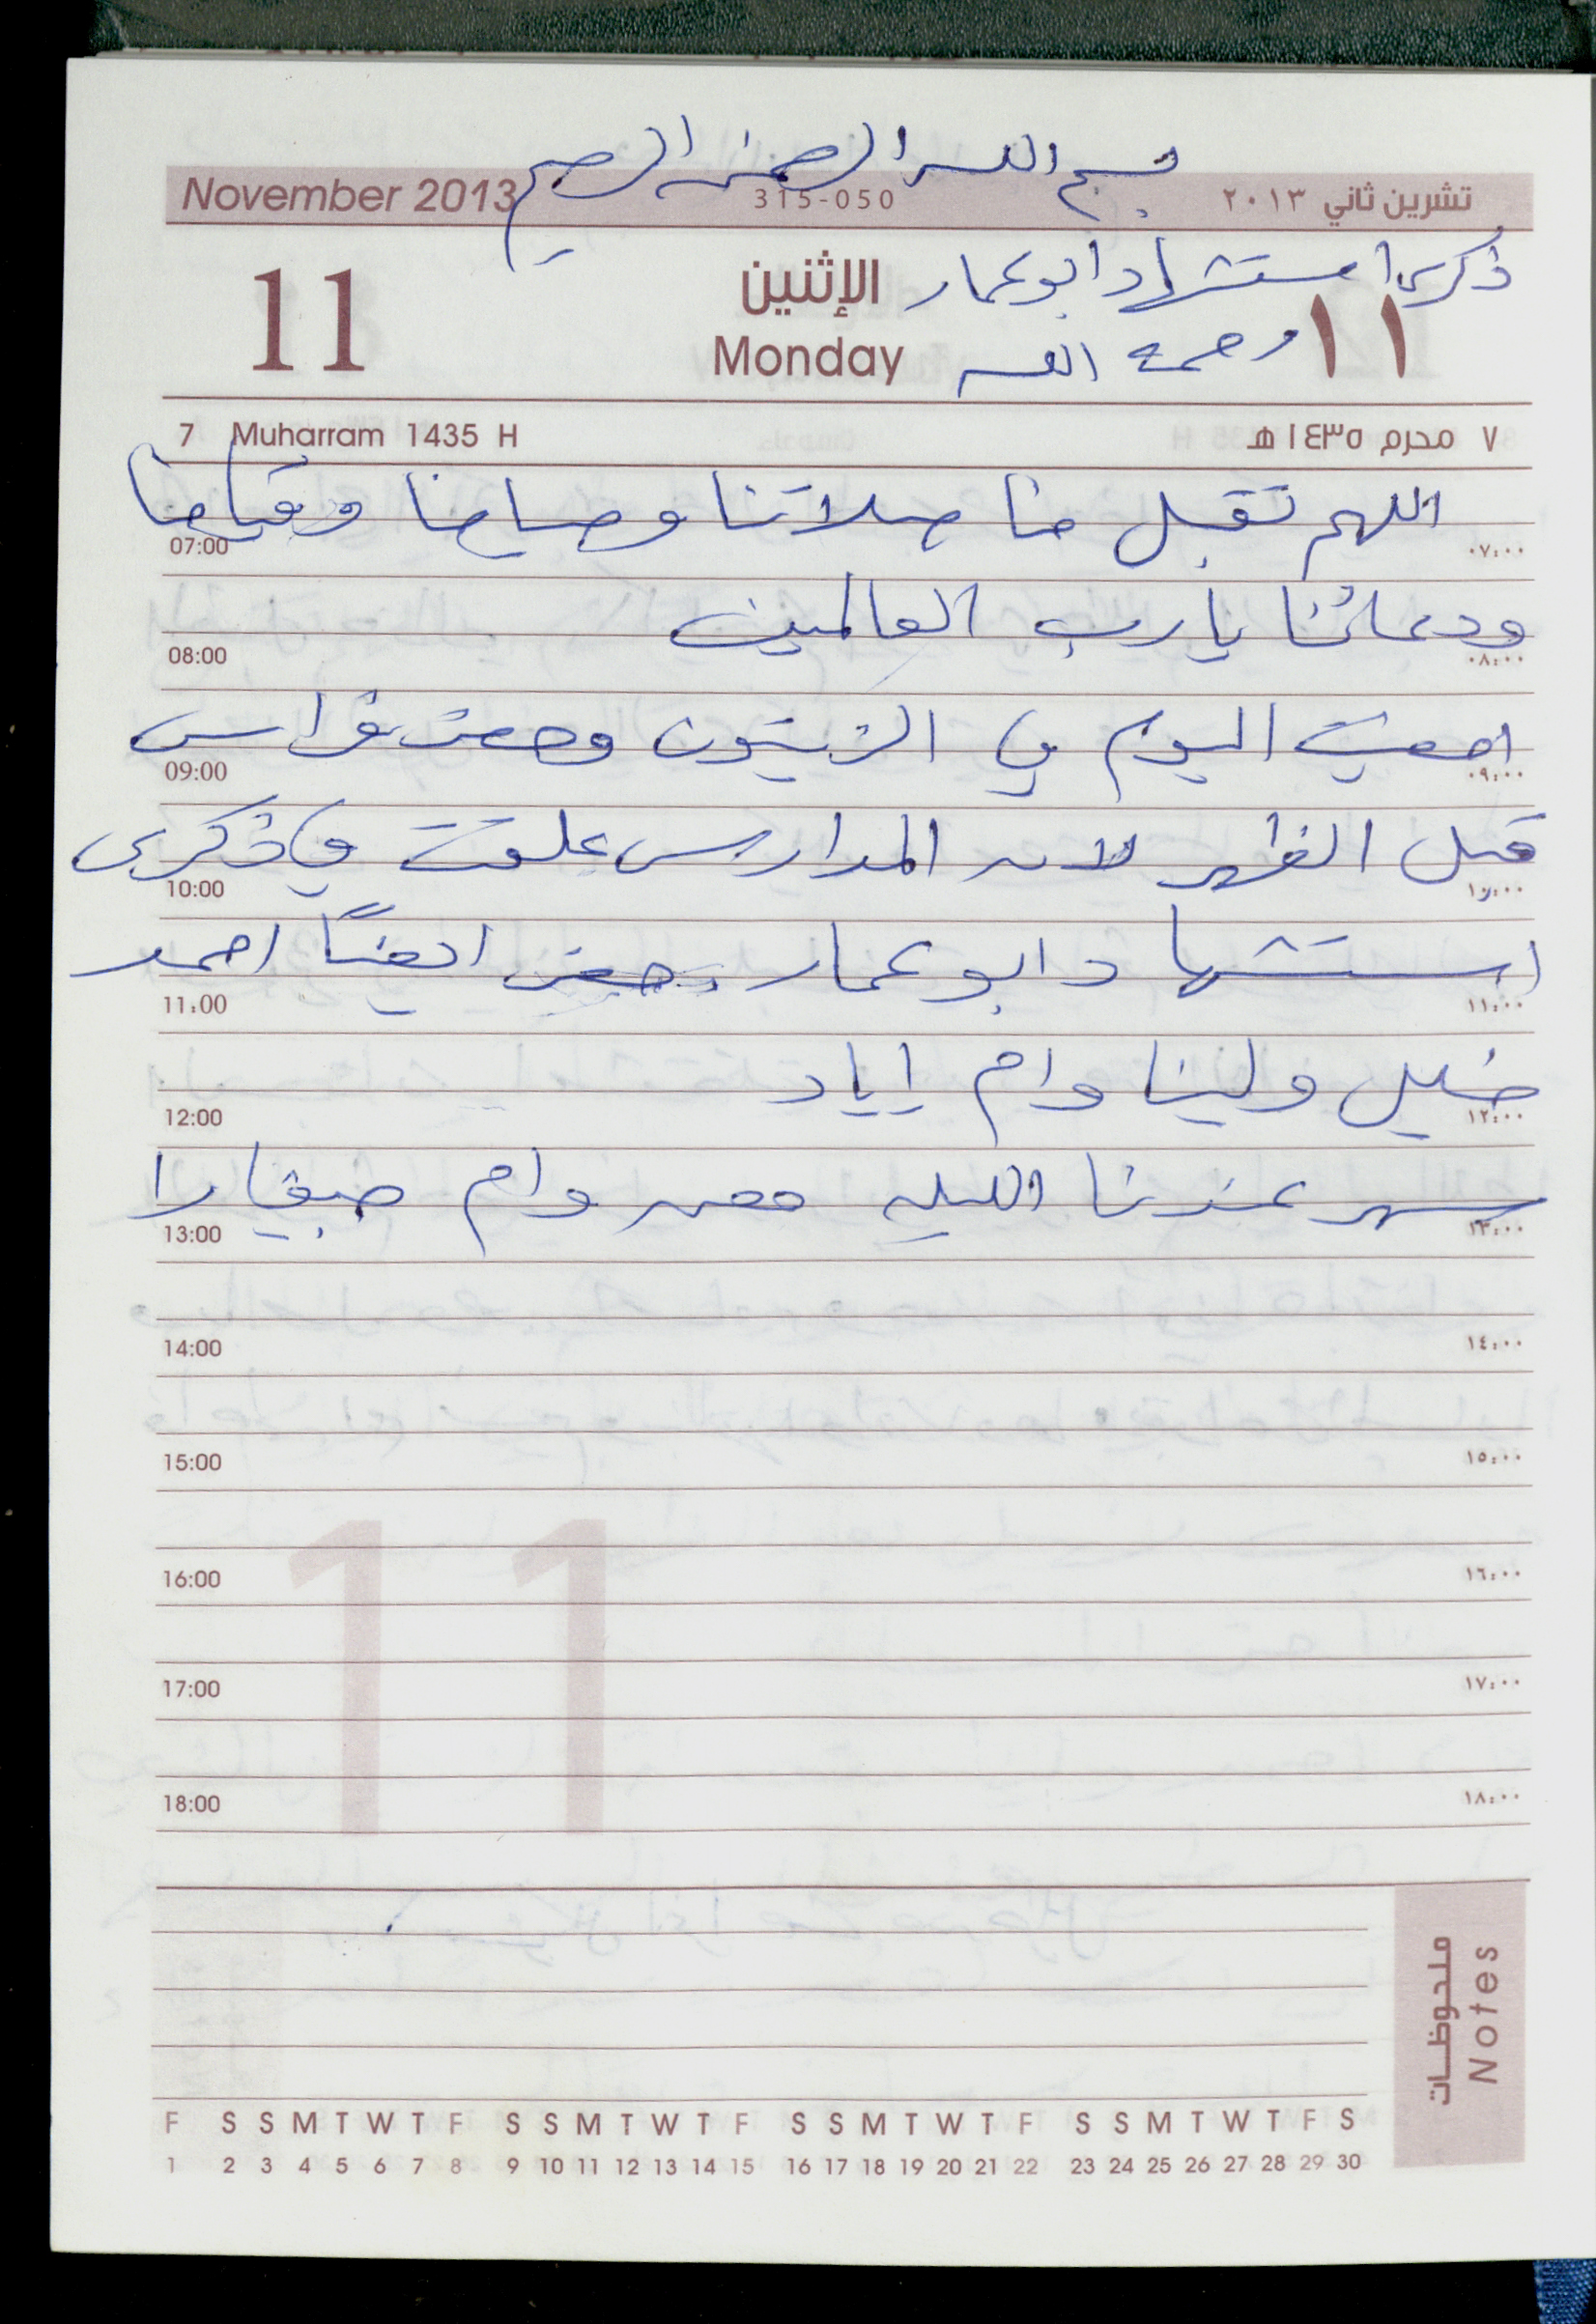 بسم الله الرحمن الرحيم
November 2013 315-050 تشرين ثاني ٢٠١٣
ذكرى استشهاد ابو عمار
11 الإثنين ١١
Monday رحمه الله
7 Muharram 1435 H ٧ محرم ١٤٣٥ هـ
اللهم تقبل منا صلاتنا وصيامنا وقيامنا
07:00 ٠٧:٠٠
ودعائنا يا رب العالمين
08:00 ٠٨:٠٠
اليوم في الزيتون فراس
09:00 ٠٩:٠٠
قبل الظهر لان المدارس علقت في ذكرى
10:00 ١٠:٠٠
استشهاد ابو عمار ايضاً احمد
11:00 ١١:٠٠
خليل ولينا وام إياد
12:00 ١٢:٠٠
سهر عندنا الليله معن وام
13:00 ١٣:٠٠
14:00 ١٤:٠٠
15:00 ١٥:٠٠
16:00 ١٦:٠٠
17:00 ١٧:٠٠
18:00 ١٨:٠٠
11
ملحوظات
Notes
F S S M T W T F S S M T W T F S S M T W T F S S M T W T F S
1 2 3 4 5 6 7 8 9 10 11 12 13 14 15 16 17 18 19 20 21 22 23 24 25 26 27 28 29 30